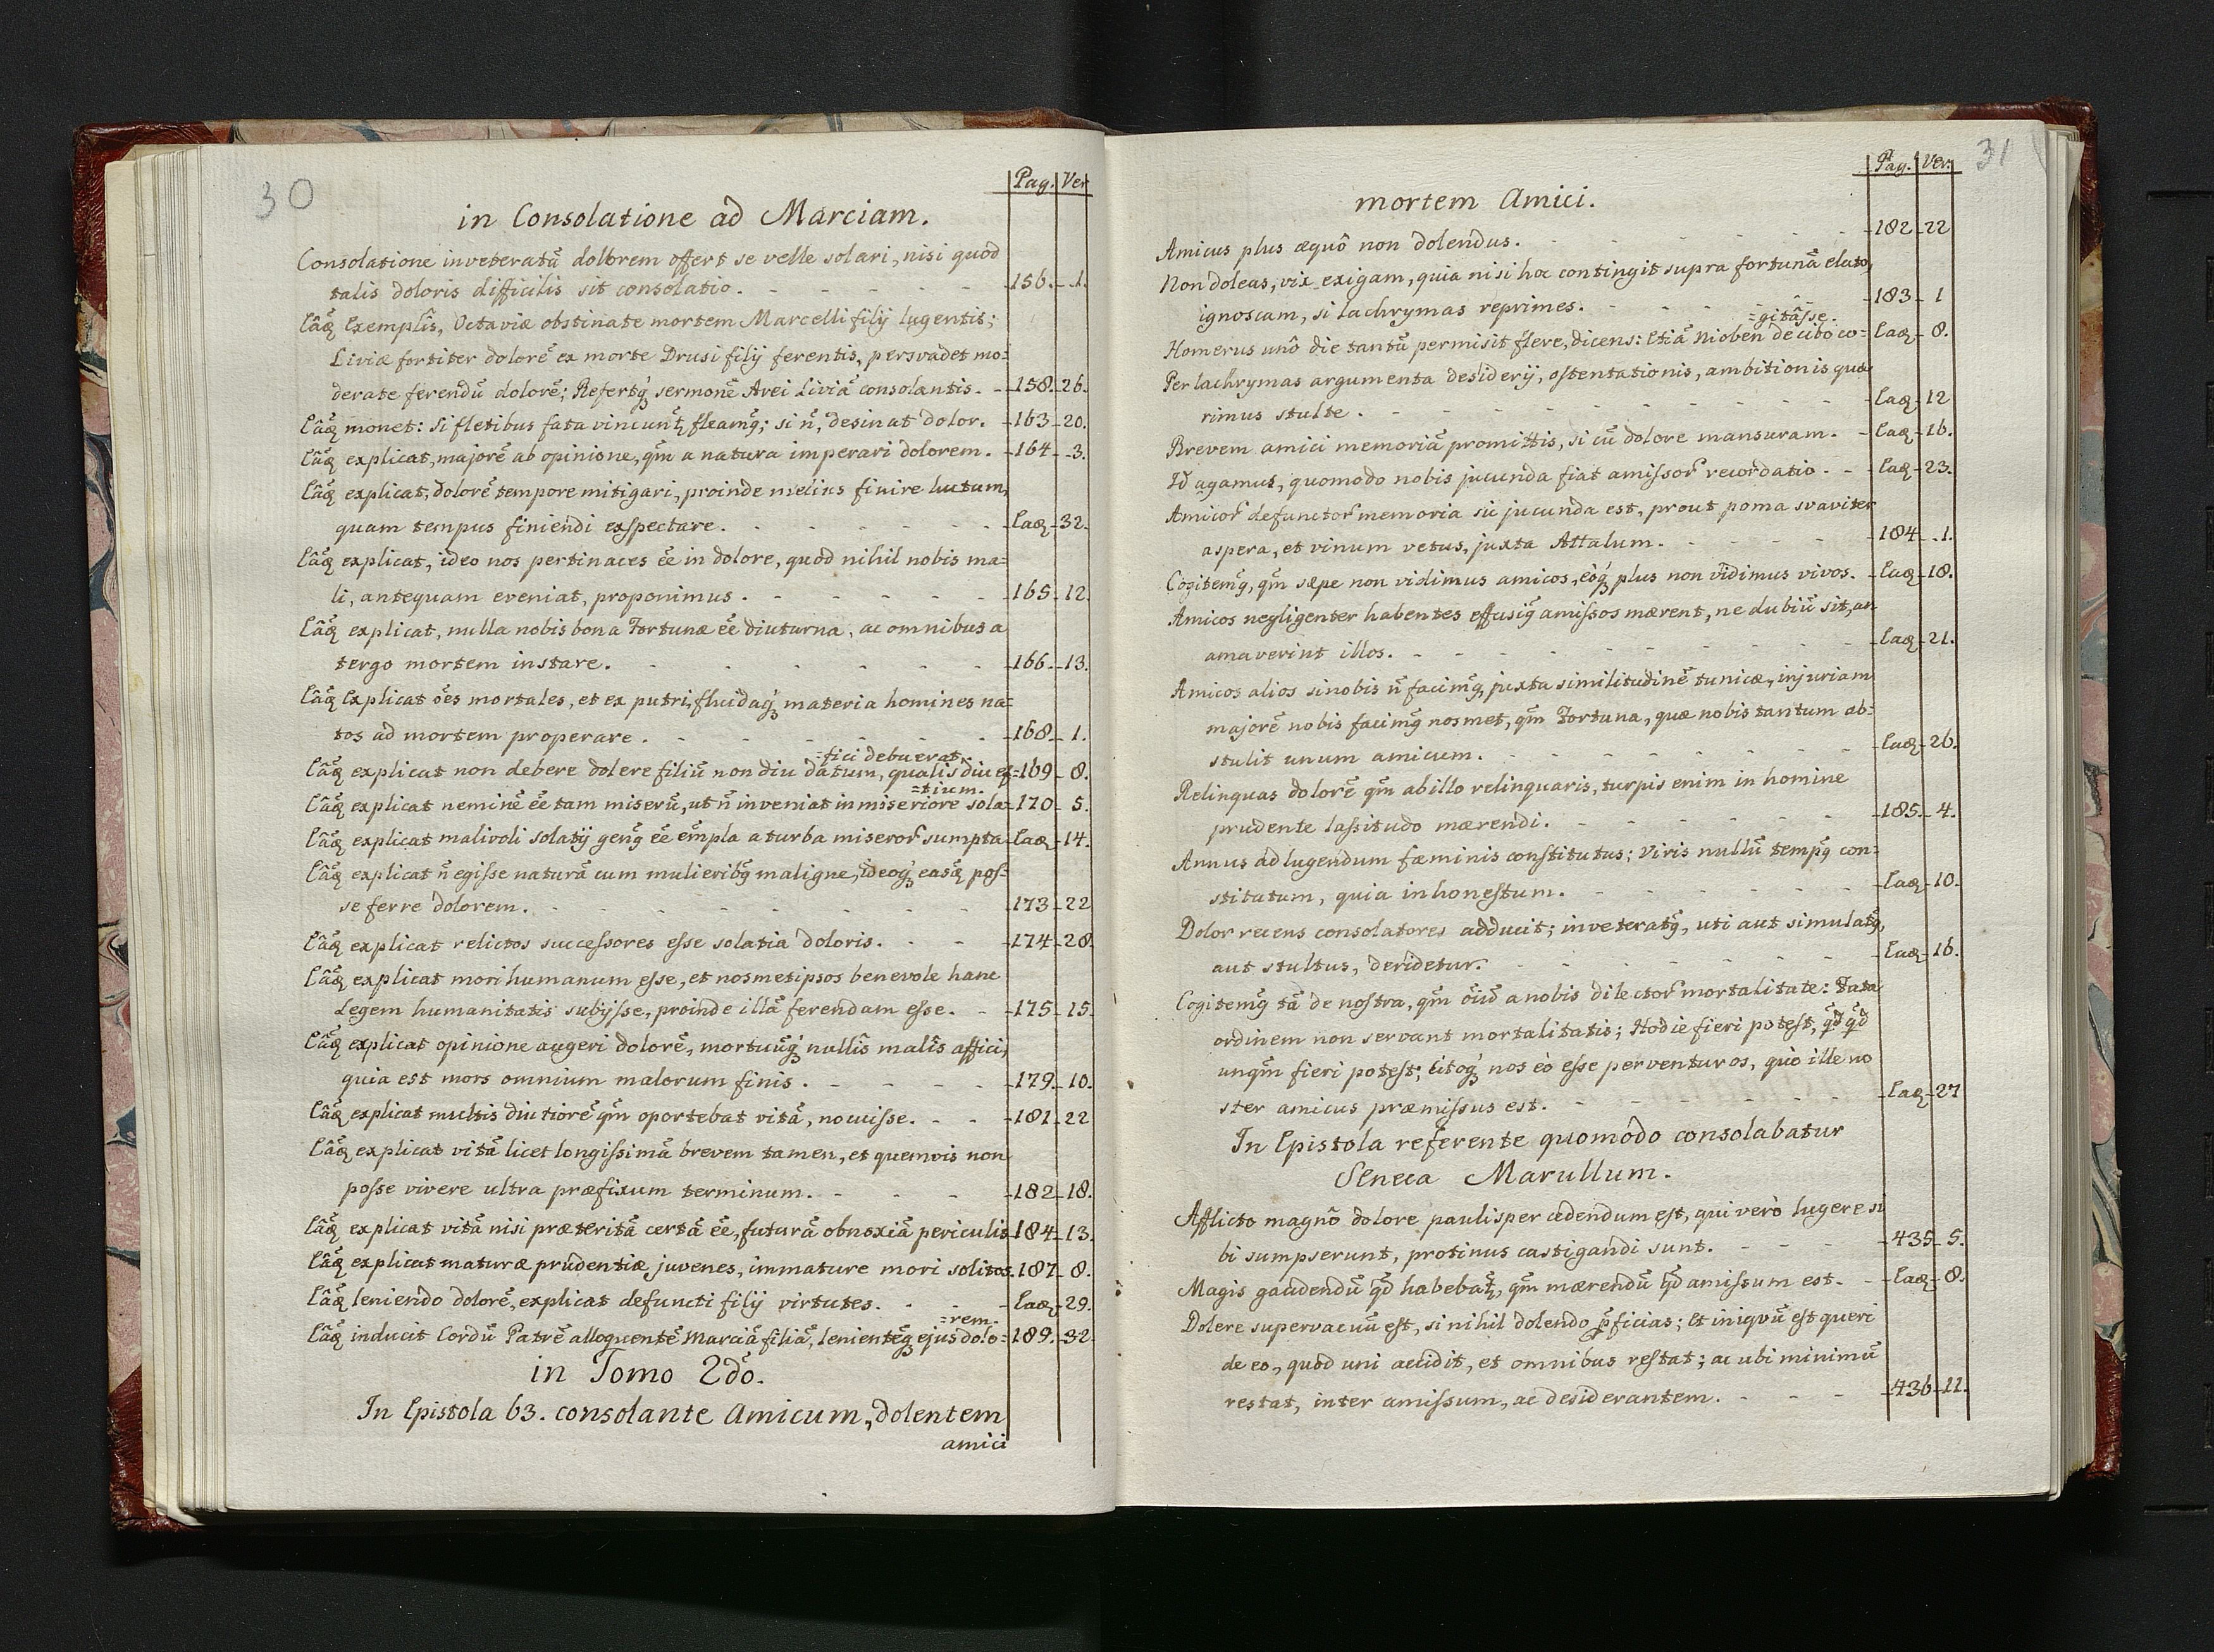 30
Pag. Ver
in Consolatione ad Marciam.
Consolatione inveteratū dolorem offert se velle solari, nisi quod
talis doloris difficilis sit consolatio. - - - - - 156. - 1.
Exemplîs, Octaviæ obstinate mortem Marcelli filij lugentis;
Liviæ fortiter dolorē ex morte Drusi filij ferentis, persvadet mo=
derate ferendū dolorē; Refertq́ sermonē Arei Liviā consolantis. - 158. 26.
monet: si fletibus fata vincunt, fleamq; si n̄, desinat dolor. 163 - 20.
explicat, majorē ab opinione, qm̄ a natura imperari dolorem. 164 - 3.
explicat, dolorē tempore mitigari, proinde melius finire luctum,
quam tempus finiendi exspectare. - - - - - eaq 32.
explicat, ideo nos pertinaces ēē in dolore, quod nihil nobis ma=
li, antequam eveniat, proponimus. - - - - - 165 - 12.
explicat, nulla nobis bona Fortunæ ēē diuturna, ac omnibus a
tergo mortem instare. - - - - - 166. - 13.
Explicat ōēs mortales, et ex putri, fluidaq́ materia homines na=
tos ad mortem properare. - - - - - 168. - 1.
=fici debuerat.
explicat non debere dolere filiū non diu datum, qualis diu ef= 169 - 8.
=tium.
explicat neminē ēē tam miserū, ut n̄ inveniat in miseriore sola= 170 - 5.
explicat malivoli solatij genq ēē exempla a turba miseror sumpta eaq - 14.
explicat n̄ egisse naturā cum mulieribq maligne, ideoq́ easq pos=
se ferre dolorem. - - - - - 173 - 22
explicat relictos successores esse solatia doloris. - - 174 - 28.
explicat mori humanum esse, et nosmetipsos benevole hanc
Legem humanitatis subijsse, proinde illā ferendam esse. - - 175 - 15.
explicat opinione augeri dolorē, mortuūq́ nullîs malîs affici,
quia est mors omnium malorum finis. - - - - 179. - 10.
explicat multis diutiorē qm̄ oportebat vitā, nocuisse. - - 181 - 22
explicat vitā licet longissimā brevem tamen, et quemvis non
posse vivere ultra præfixum terminum. - - - 182 - 18.
explicat vitā nisi præteritā certā ēē, futurā obnoxiā periculis 184 - 13.
explicat maturæ prudentiæ juvenes, immature mori solitos. 187 - 8.
leniendo dolorē, explicat defuncti filij virtutes. - - eaq - 29.
=rem.
inducit Cordū Patrē alloquentē Marciā filiā, lenientēq ejus dolo= 189. - 32.
in Tomo 2dō.
In Epistola 63. consolante Amicum, dolentem
amici
31
Pag. Ver.
mortem Amici.
Amicus plus æquô non dolendus. - - - - - 182 - 22
Non doleas, vix exigam, quia nisi hoc contingit supra fortunā elato,
ignoscam, si lachrymas reprimes. - - - - - 183 - 1
=gitâsse.
Homerus unô die tantū permisit flere, dicens: Etiā Nioben de cibo co= eaq - 8.
Per lachrymas argumenta desiderij, ostentationis, ambitionis quæ=
rimus stulte. - - - - - eaq - 12
Brevem amici memoriā promittis, si cū dolore mansuram. - eaq - 16.
Id agamus, quomodo nobis jucunda fiat amissor recordatio. - - eaq - 23.
Amicor defunctor memoria sic jucunda est, prout poma svaviter
aspera, et vinum vetus, juxta Attalum. - - - - 184 - 1.
Cogitemq, qm̄ sæpe non vidimus amicos, eòq́ plus non vidimus vivos. - eaq - 18.
Amicos negligenter habentes effusiq amissos mærent, ne dubiū sit, an
amaverint illos. - - - - - eaq - 21.
Amicos alios si nobis n̄ facimq, juxta similitudinē tunicæ, injuriam
majorē nobis facimq nosmet, qm̄ Fortuna, quæ nobis tantum ab=
stulit unum amicum. - - - - - eaq - 26.
Relinquas dolorē qm̄ ab illo relinquaris, turpis enim in homine
prudente lassitudo mærendi. - - - - - 185. - 4.
Annus ad lugendum fæminis constitutus; Viris nullū tempq con=
stitutum, quia inhonestum. - - - - - eaq - 10.
Dolor recens consolatores adducit; inveteratq, uti aut simulatq,
aut stultus, deridetur. - - - - - eaq - 16.
Cogitemq tā de nostra, qm̄ ōiū a nobis dilector mortalitate: Fata
ordinem non servant mortalitatis; Hodie fieri potest, qd̄ qd̄
unqm̄ fieri potest; citoq́ nos eò esse perventuros, quò ille no
ster amicus præmissus est. - - - - - eaq - 27
In Epistola referente quomodo consolabatur
Seneca Marullum.
Afflicto magnô dolore paulisper cedendum est, qui verò lugere si
bi sumpserunt, protinus castigandi sunt. - - - - 435 - 5.
Magis gaudendū qd̄ habebat, qm̄ mærendū qd̄ amissum est. - eaq - 8.
Dolere supervacuū est, si nihil dolendo p̄ficias; Et iniqvū est queri
de eo, quod uni accidit, et omnibus restat; ac ubi minimū
restat, inter amissum, ac desiderantem. - - - 436 - 11.